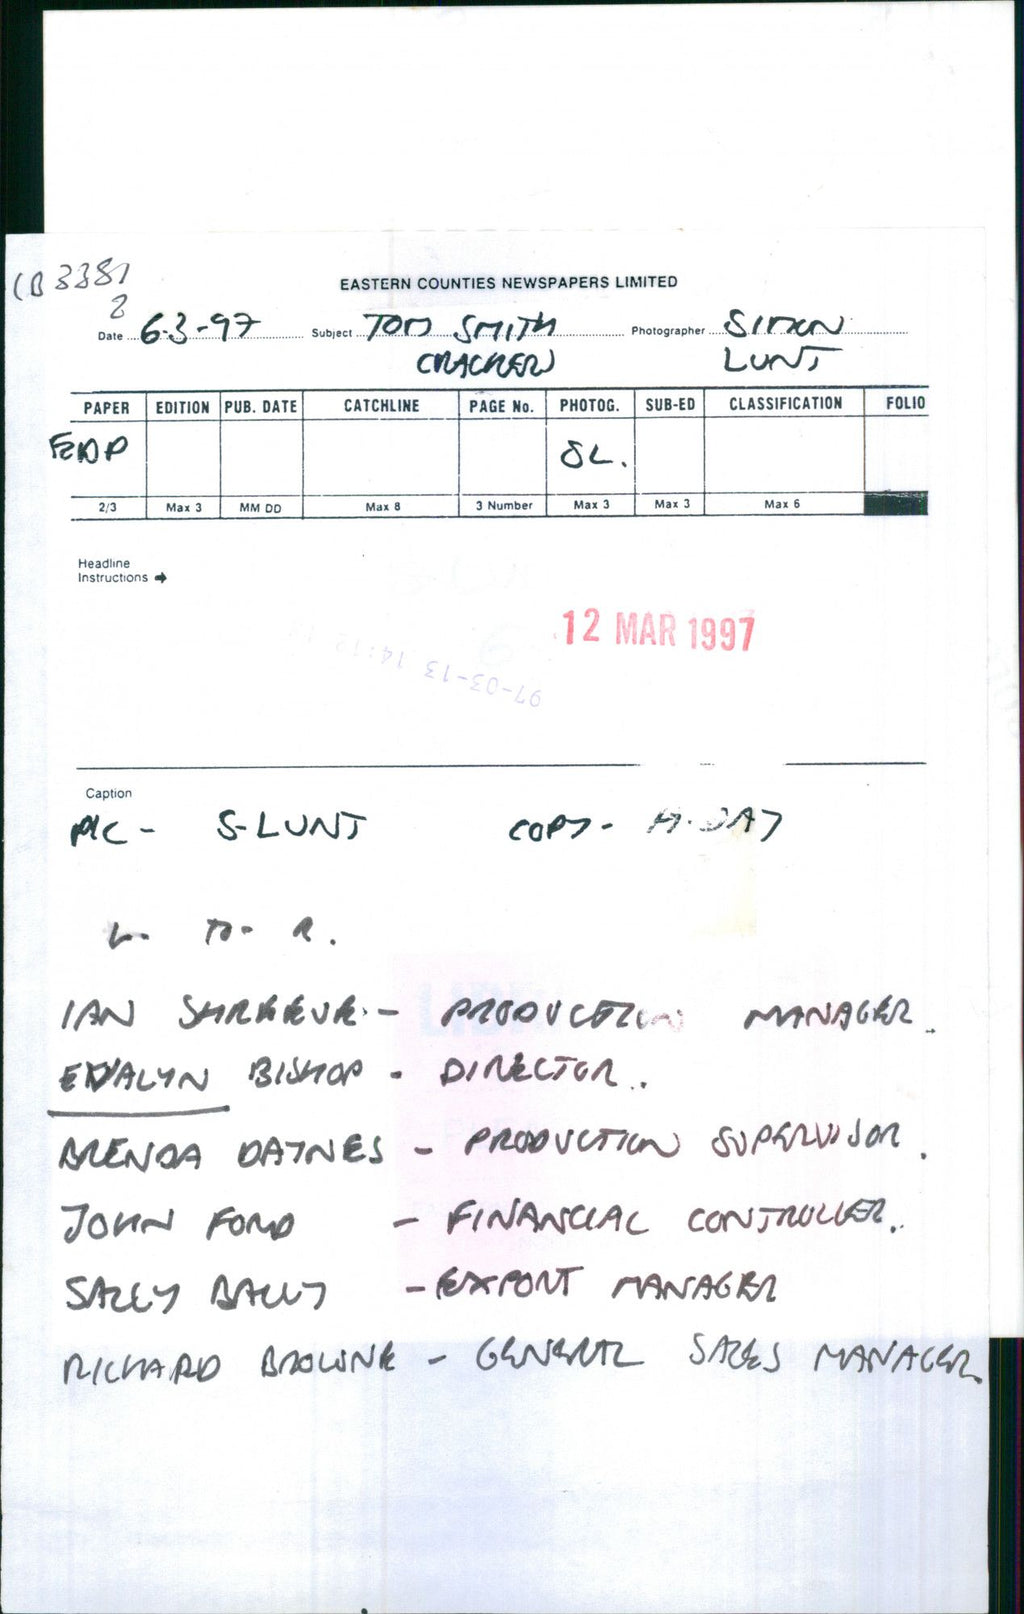 CB 3381
2
EASTERN COUNTIES NEWSPAPERS LIMITED
Date 6-3-97 Subject TOM SMITH Photographer SIMON
CRACKERS LUNT
PAPER EDITION PUB. DATE CATCHLINE PAGE No. PHOTOG. SUB-ED CLASSIFICATION FOLIO
EDP SL.
2/3 Max 3 MM DD Max 8 3 Number Max 3 Max 3 Max 6
Headline
Instructions
12 MAR 1997
97-03-13 14:12
Caption
PIC - S-LUNT COPY - DAY
L- TO- R.
IAN SHREEVE - PRODUCTION MANAGER.
EVALYN BISHOP - DIRECTOR.
BRENDA DAYNES - PRODUCTION SUPERVISOR.
JOHN FORD - FINANCIAL CONTROLLER.
SALLY BALLY - EXPORT MANAGER
RICHARD BROWNE - GENERAL SALES MANAGER